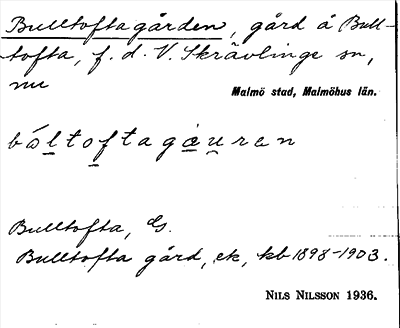 Bulltoftagården, gård å Bull-
tofta, f. d. V. Skrävlinge sn,
nu Malmö stad, Malmöhus län.
Bulltofta, G.
Bulltofta gård, ek, kb 1898-1903.
NILS NILSSON 1936.